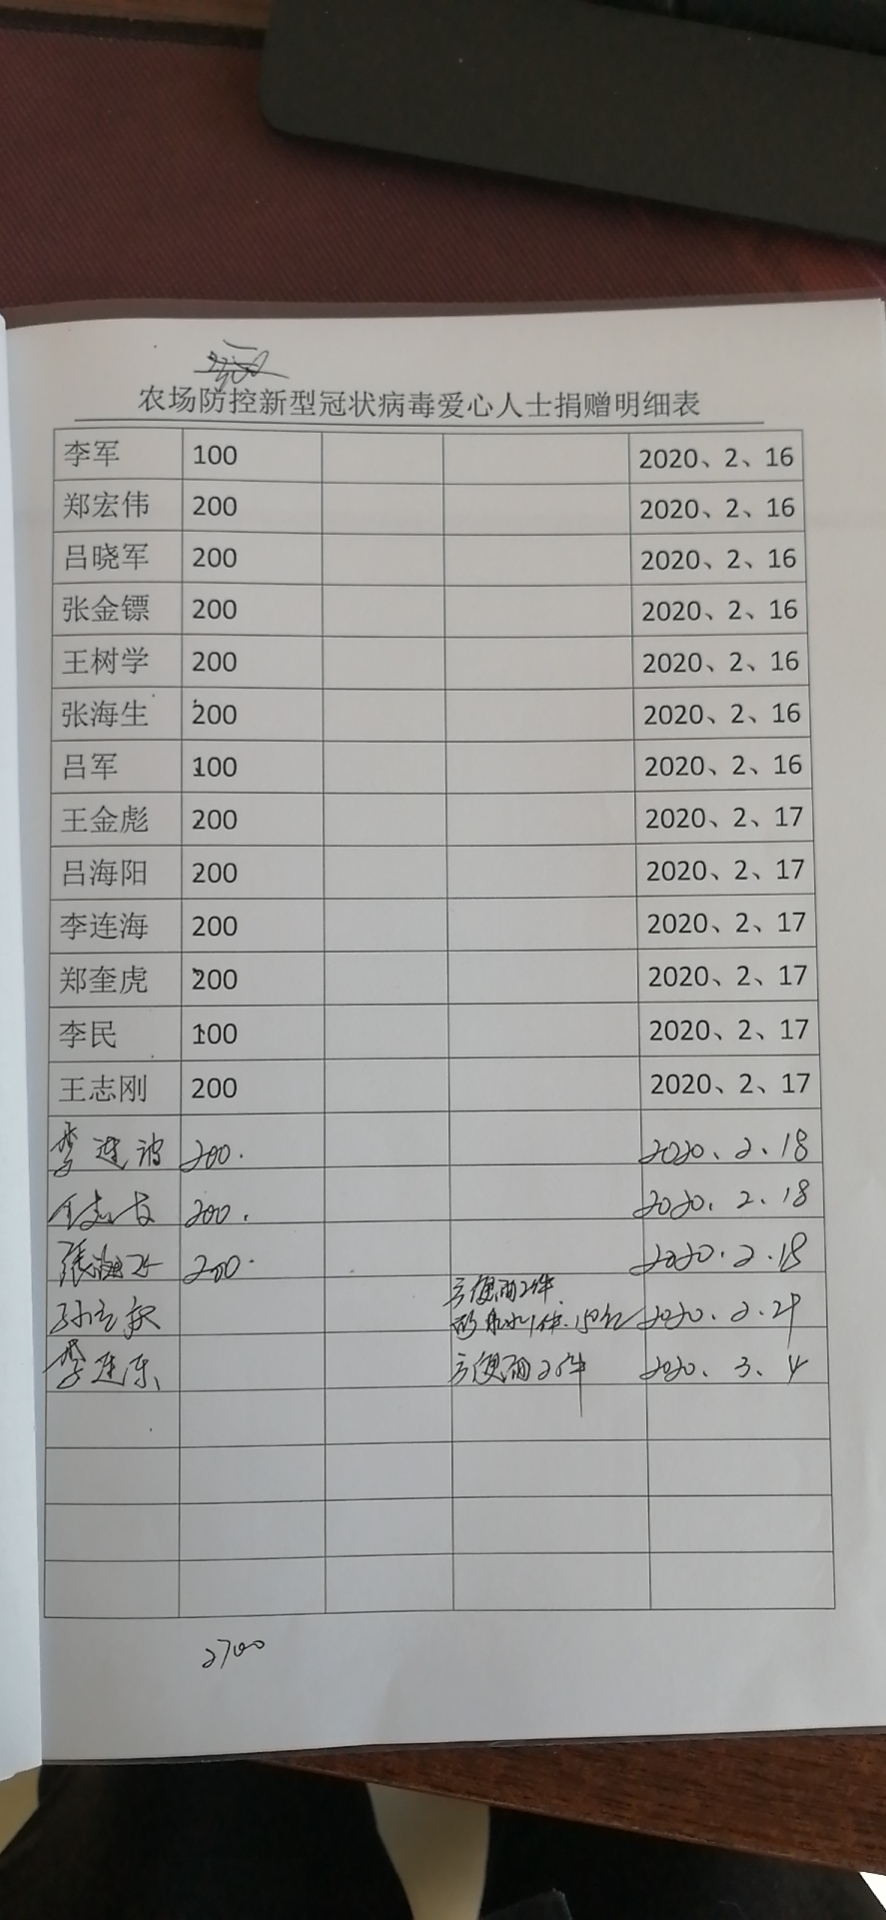 农场防控新型冠状病毒爱心人士捐赠明细表
李军 100 2020、2、16
郑宏伟 200 2020、2、16
吕晓军 200 2020、2、16
张金镖 200 2020、2、16
王树学 200 2020、2、16
张海生 200 2020、2、16
吕军 100 2020、2、16
王金彪 200 2020、2、17
吕海阳 200 2020、2、17
李连海 200 2020、2、17
郑奎虎 200 2020、2、17
李民 100 2020、2、17
王志刚 200 2020、2、17
李连波 200. 2020.2.18
200. 2020.2.18
張海 200. 2020.2.18
方便面2件
孙 水1件.150元 2020.2.29
李连东 方便面25件 2020.3.4
2700